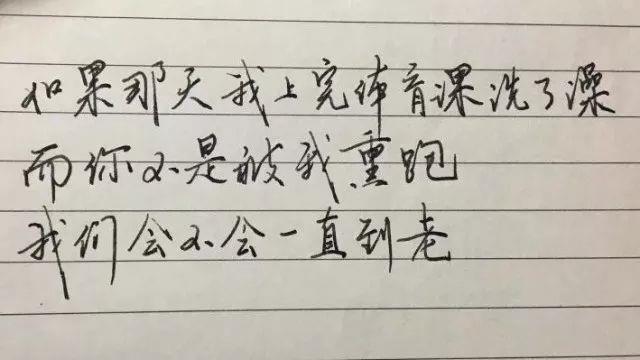 如果那天我上完体育课洗了澡
而你不是被我熏跑
我们会不会一直到老